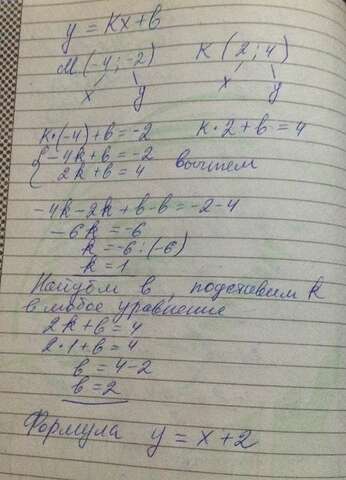 y = Kx+b
M (-4; -2) K (2; 4)
x y x y
k·(-4)+b=-2 k·2+b=4
{-4k+b=-2
2k+b=4 вычтем
-4k-2k+b-b=-2-4
-6k=-6
k=-6:(-6)
k=1
Найдём b, подставим k
в любое уравнение
2k+b=4
2·1+b=4
b=4-2
b=2
Формула y=x+2